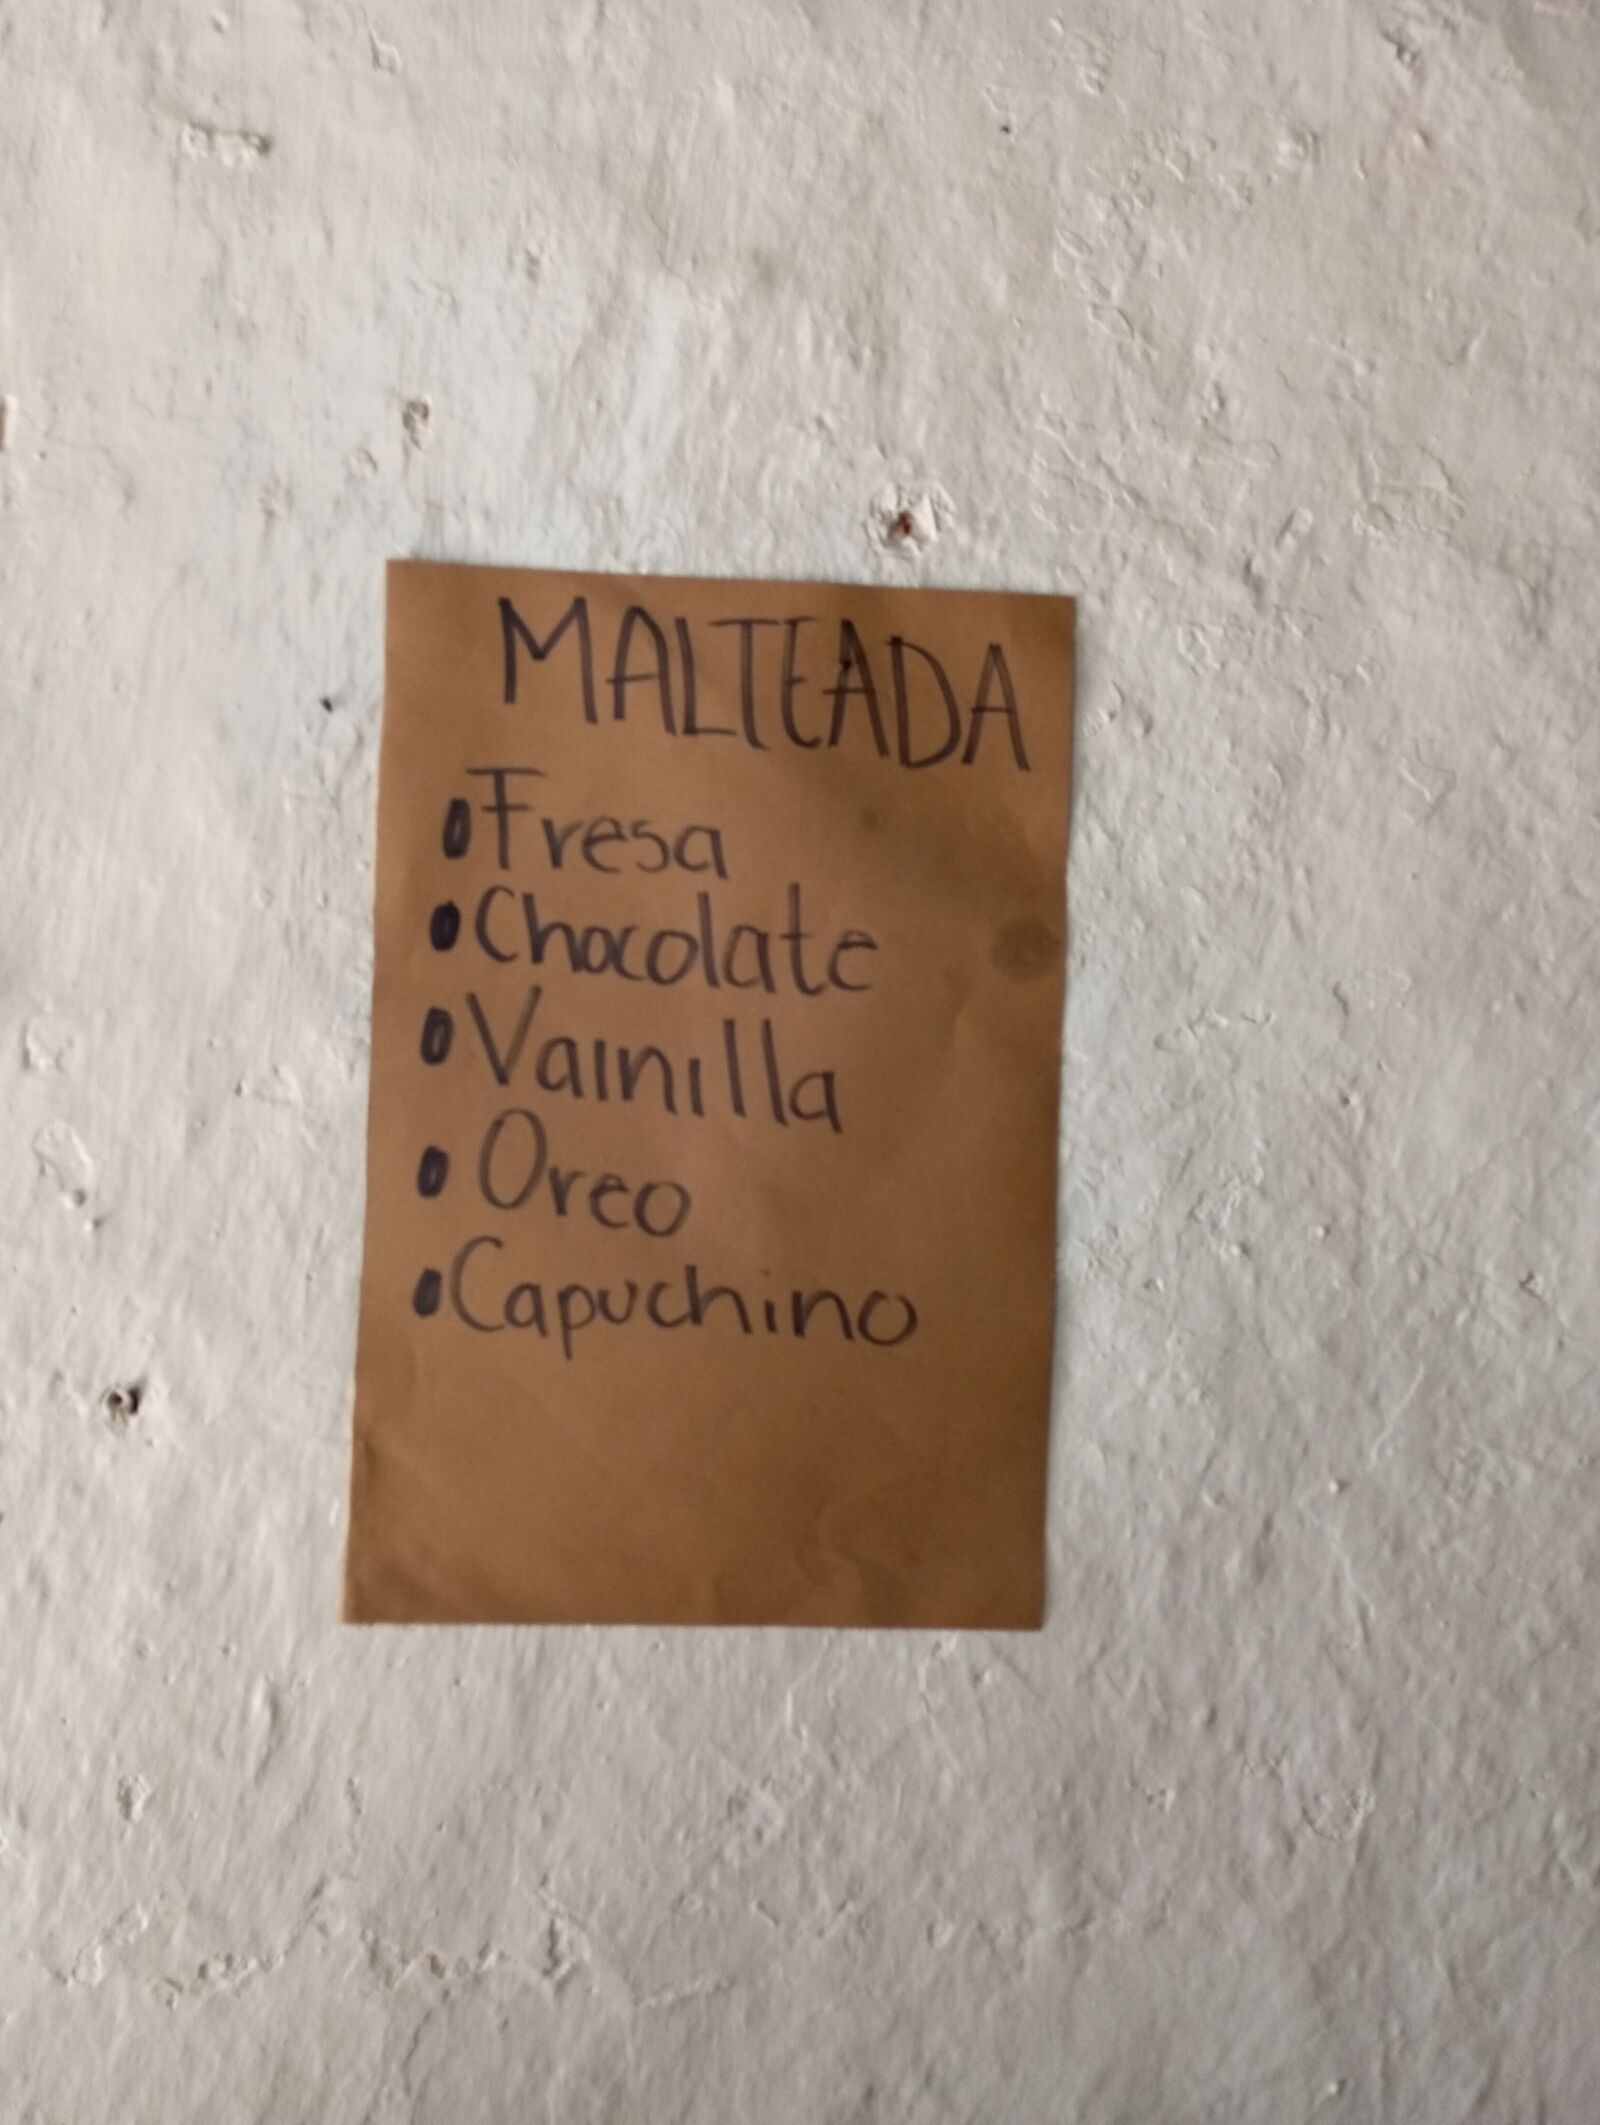 MALTEADA
• Fresa
• Chocolate
• Vainilla
• Oreo
• Capuchino